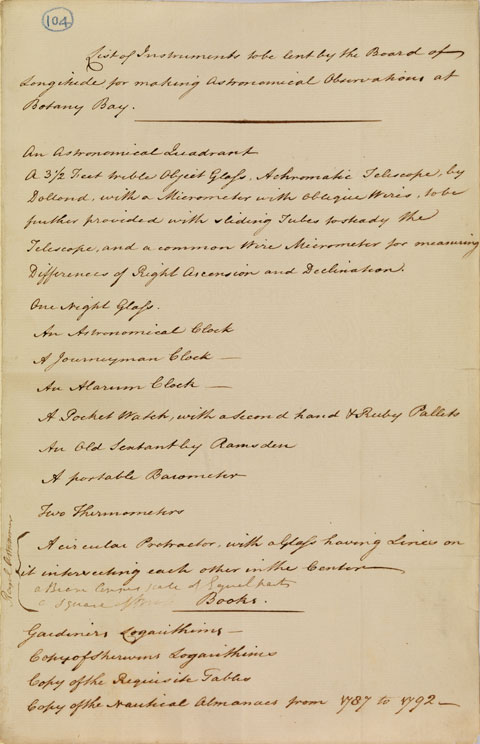 104
List of Instruments to be lent by the Board of
Longitude for making Astronomical Observations at
Botany Bay.
An Astronomical Quadrant
A 3½ Feet treble Object Glass Achromatic Telescope, by
Dollond, with a Micrometer with Oblique Wires, to be
further provided with sliding Tubes to steady the
Telescope, and a common Wire Micrometer for measuring
Differences of Right Ascension and Declination.
One Night Glass.
An Astronomical Clock
A Journeyman Clock —
An Alarum Clock —
A Pocket Watch, with a second hand & Ruby Pallets
An Old Sextant by Ramsden
A portable Barometer
Two Thermometers
A circular Protractor, with a Glass having Lines on
it intersecting each other in the Center
a scale of Equal parts
Square
Books.
Gardiners Logarithims —
Copy of Sherwins Logarithims
Copy of the Requisite Tables
Copy of the Nautical Almanacs from 1787 to 1792 —